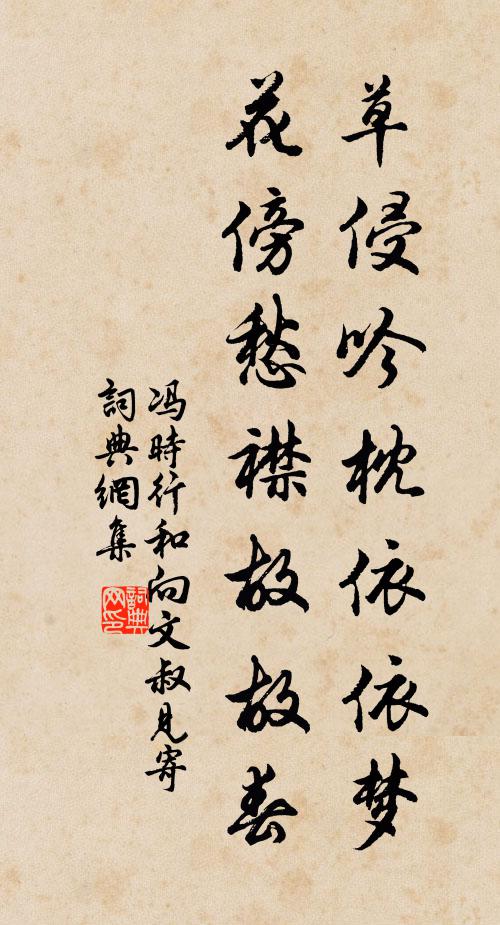 草侵吟枕依依梦
花傍愁襟故故春
冯時行和向文叔見寄
詞典網集
詞典
网印